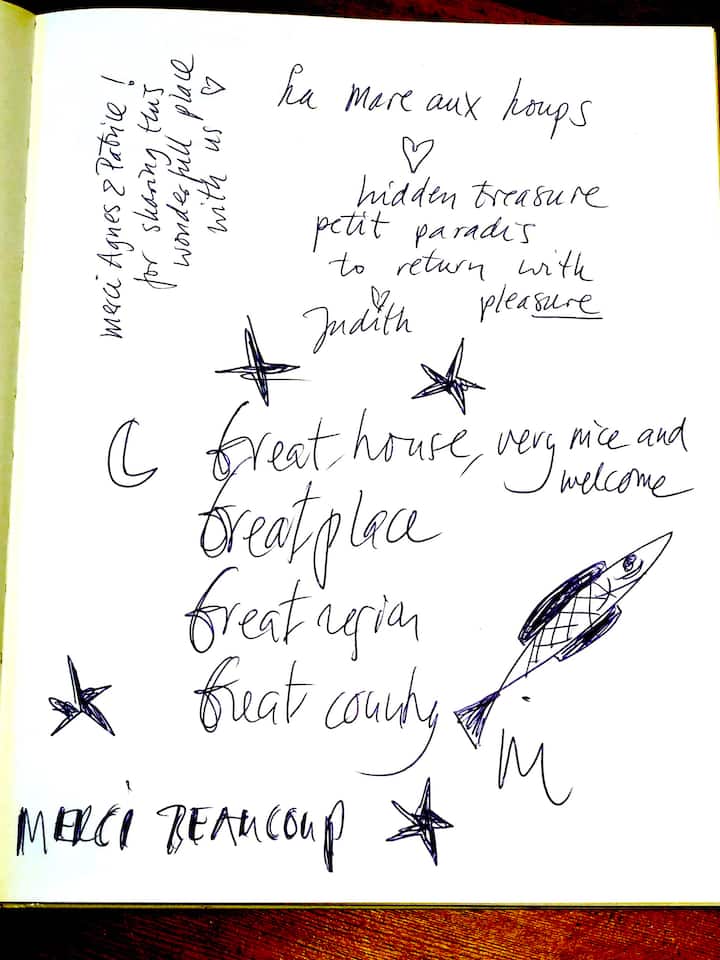 merci Agnes & Patrice!
for sharing this
wonderfull place
with us ♡
La mare aux houps
♡
hidden treasure
petit paradis
to return with
pleasure
Judith
Great house, very nice and
welcome
Great place
Great region
Great county
MERCI BEAUCOUP